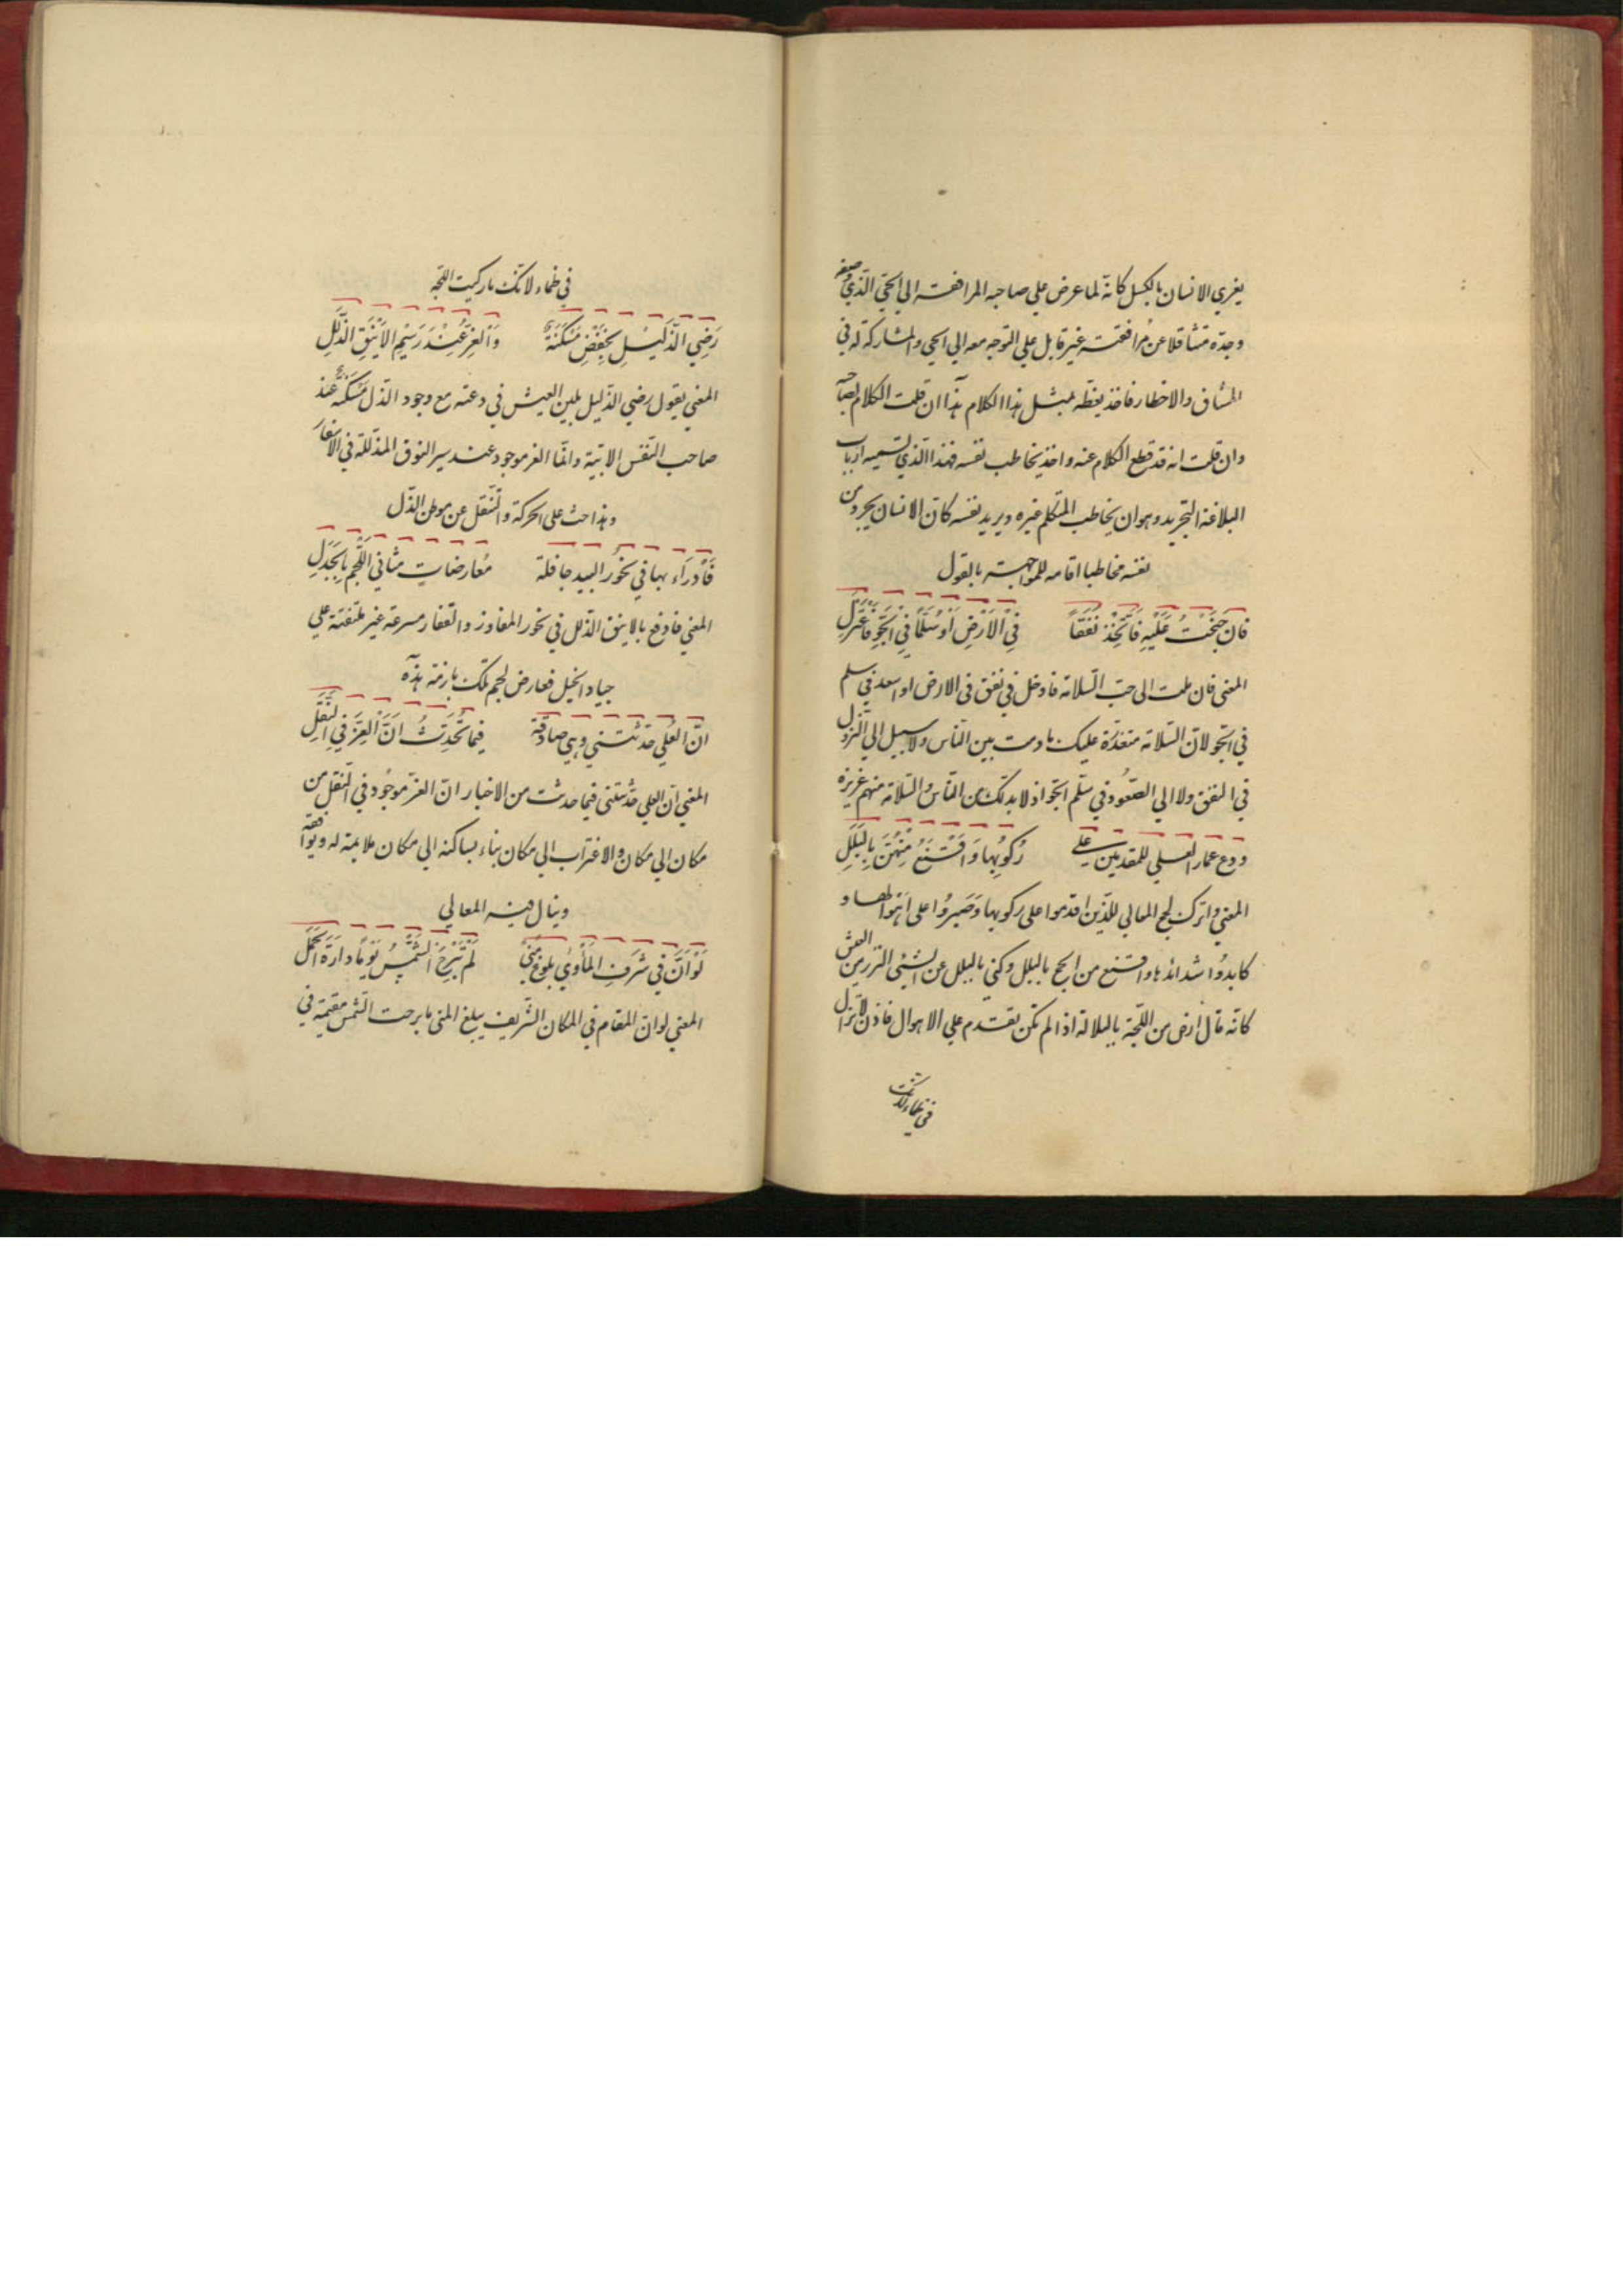 يغري الانسان بالكسل كانه لما عرض على صاحبه المرافقة الى الحي الذي وصفه
وجده متثاقلا عن مُرافقته غير قابل على التوجه معه الى الحي والمشاركة له في
المشاق والاخطار فاخذ يعظه بمثل هذا الكلام هذا ان قلت الكلام لصاحبه
وان قلت انه قد قطع الكلام عنه واخذ يخاطب نفسه فهذا الذي تسميه ارباب
البلاغة التجريد وهو ان يخاطب المتكلم غيره ويريد نفسه كان الانسان يجرد من
نفسه مخاطبا اقامه للمواجهة بالقول
فان جَنَحْتَ عَلَيْهِ فَاتَّخِذْ نَفَقًا    فِي الْاَرْضِ اَوْ سُلَّمًا فِي الْجَوِّ فَاعْتَزِلِ
المعنى فان ملت الى حب السلامة فادخل في نفق فى الارض او اسعد في سلم
في الجو لان السلامة متعذرة عليك ما دمت بين الناس ولا سبيل الى النزول
في النفق ولا الى الصعُود في سلم الجو اذ لا بد لك من الناس والسلامة منهم عزيزة
ودع غمار العلى للمقدمين على    رُكُوبِها وَاقْتَنِعْ مِنْهُنَّ بِالْبَلَلِ
المعنى واترك لجج المعالي للذين اقدموا على ركوبها وَصَبرُوا على اهوالها و
كابدُوا شدائدها واقتنع من اللجج بالبلل وكنى بالبلل عن الشئ النزر من العيش
كانه قال ارض من اللجة بالبلالة اذا لم تكن تقدم على الاهوال فاذن لا تزال
في ظماء لانك
في ظماء لانك ما ركبت اللجة
رَضِي الذَّلِيْلِ بِخَفْضِ مَسْكَنَةٌ    وَالْعِزُّ عِنْدَ رَسِيْمِ الاَيْنُقِ الذُّلَلِ
المعنى يقول رضى الذليل بلين العيش في دعته مع وجود الذل مَسْكَنَةٌ عند
صاحب النفس الابية وانما العز موجود عند سير النوق المذللة في الاسفار
وهذا حث على الحركة والتنقل عن موطن الذل
فَادْرَاء بها في نحُور البيد جافلة    مُعارضاتٍ مثاني اللُّجْمِ بِالْجُدُلِ
المعنى فادفع بالاينق الذلل في نحور المفاوز والقفار مسرعة غير ملتفتة على
جياد الخيل فعارض لجم تلك بازمة هذه
انَّ العُلى حدثتني وهي صادقة    فِيما تُحَدِّثُ اَنَّ الْعِزَّ فِي النُّقَلِ
المعنى ان العلى حدثتنى فيما حدثت من الاخبار ان العز موجُود في التنقل من
مكان الى مكان والاغتراب الى مكان بناء بساكنه الى مكان ملايمة له ويوافقه
وينال فيه المعالي
لَوْ اَنَّ في شَرَفِ المَأوىٰ بلوغَ مُنًى    لَمْ تَبْرَحِ الشَّمْسُ يَوْمًا دارَةَ الْحَمَلِ
المعنى لو ان المقام في المكان الشريف يبلغ المنى ما برحت الشمس مقيمة في